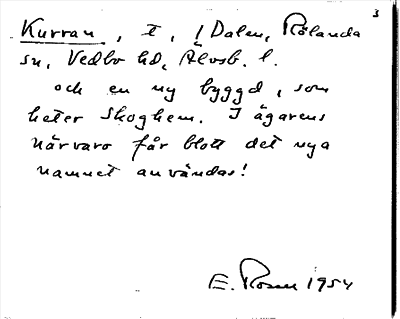 3
Kurran, t, i Dalen, Rölanda
sn, Vedbo hd, Älvsb. l.
och en ny byggd, som
heter Skoghem. I ägarens
närvaro får blott det nya
namnet användas!
E. Rosen 1954